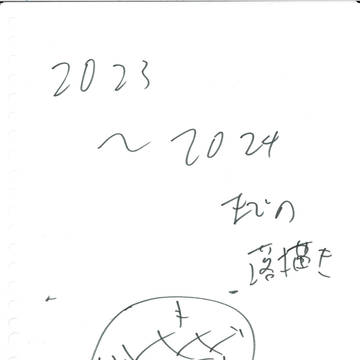 2023
~2024
までの
落描き